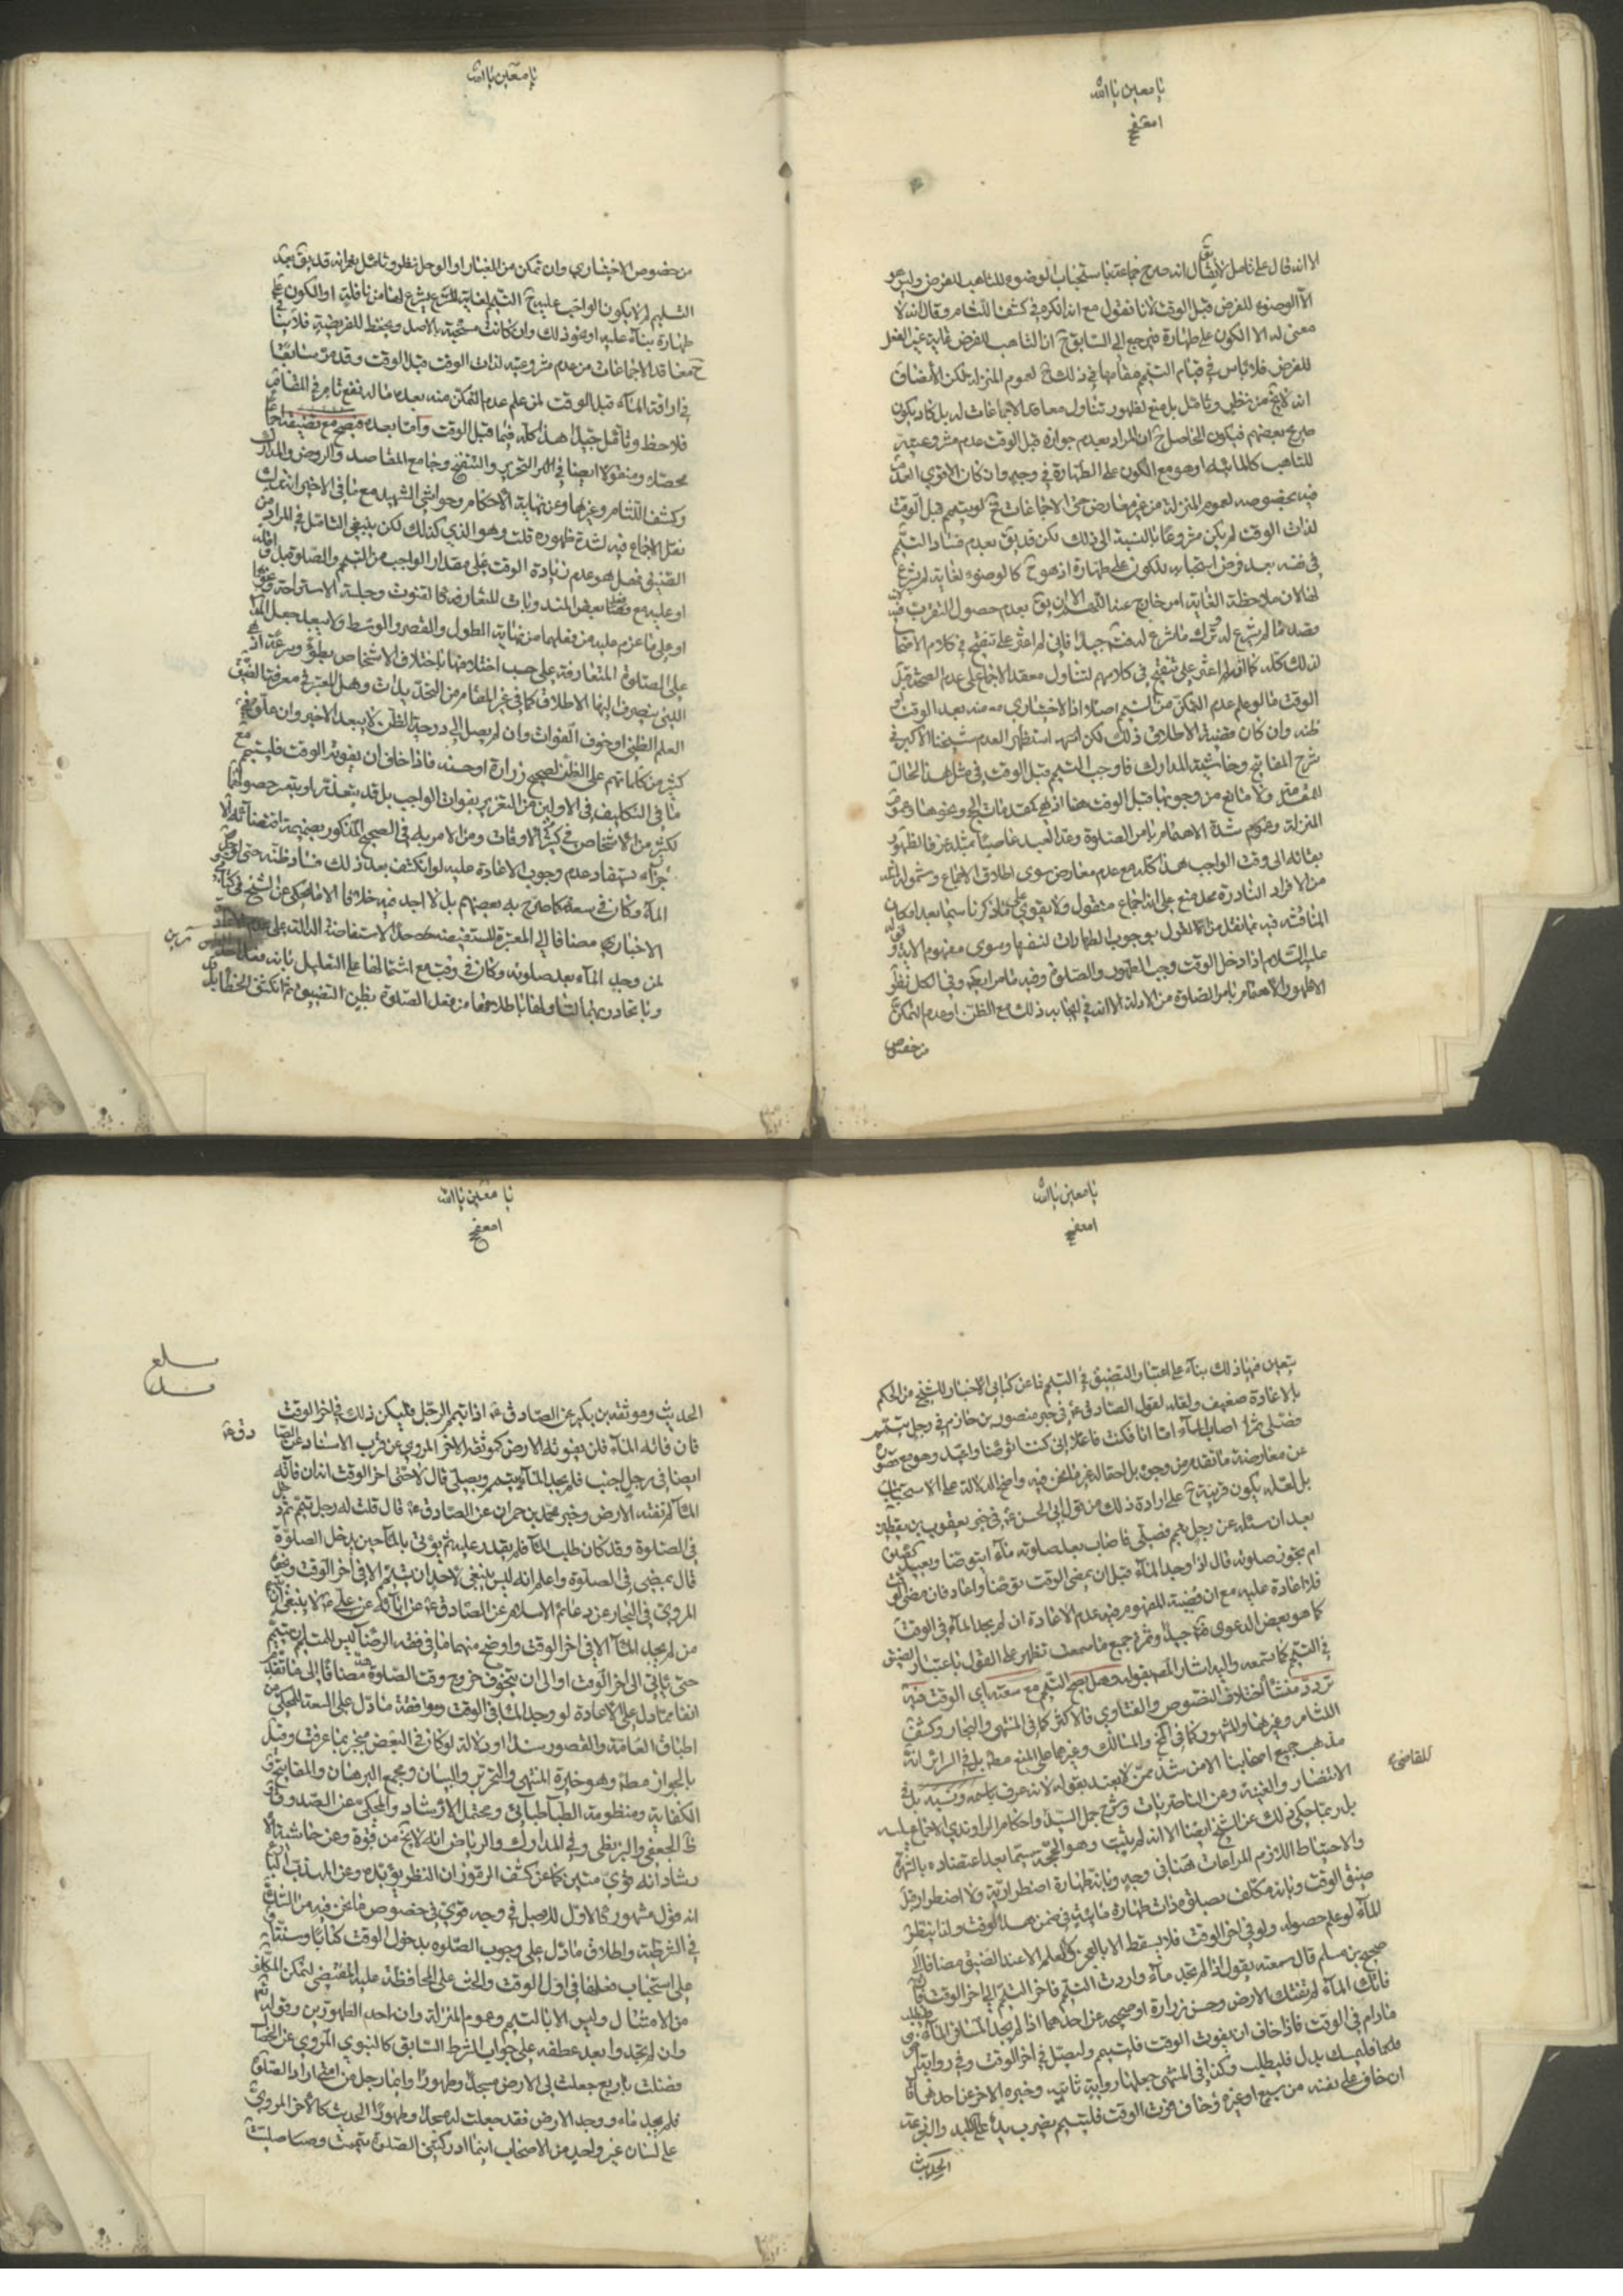 يا معين يا الله
الا انه قال على تأمل لا يقال انه صرح جماعة باستحباب الوضوء للتاهب للفرض وليس هو
الا الوضوء للفرض قبل الوقت لانا نقول مع انه انكره في كشف اللثام وقال انه لا
معنى له الا الكون على طهارة فيرجع الى السابق ح ان التاهب للفرض غاية غير الفعل
للفرض فلا باس في قيام التيمم مقامها في ذلك ح لعموم المنزلة لكن الأنصاف
انه لا يخ من نظر وتأمل بل منع لظهور تناول معاقد الاجماعات له بل كاد يكون
صريح بعضهم فيكون الحاصل ح ان المراد بعدم جوازه قبل الوقت عدم مشروعيته
للتاهب كالمائية او هو مع الكون على الطهارة في وجه وان كان الاقوى
فيه بخصوصه لعموم المنزلة من غير معارض حتى الاجماعات لو تيمم قبل الوقت
لذات الوقت لم يكن مشروعا بالنسبة الى ذلك لكن قد يق بعدم فساد التيمم
في نفسه بعد فرض استحبابه للكون على طهارة اذ هو ح كالوضوء لغاية لم يشرع
لها لان ملاحظة الغاية امر خارج عنه اللهم الا ان يق بعدم حصول التقرب فيه
بقصد ما لم يشرع له وترك ما شرع له فتامل جيدا فاني لم اعثر على تنقيح في كلام الاصحاب
لذلك كله كما اني لم اعثر على تنقيح في كلامهم لتناول معقد الاجماع على عدم الصحة قبل
الوقت ما لو علم عدم التمكن من التيمم اصلا اذا الاختياري منه بعد الوقت او
ظنه وان كان قضية الاطلاق ذلك لكن استظهر العدم شيخنا الاكبر في
شرح المفاتيح وحاشية المدارك فاوجب التيمم قبل الوقت في مثل هذا الحال
ولا مانع من وجوبها قبل الوقت هنا اذ هي كمقدمات الحج ونحوها وعموم
المنزلة وعموم شدة الاهتمام بامر الصلوة وعد العبد عاصيا بمثله عرفا لظهور
بقائه الى وقت الواجب هذا كله مع عدم معارض سوى اطلاق الاجماع وشموله لمثله
من الافراد النادرة محل منع على انه اجماع منقول ولا يقوى على ما ذكرنا سيما بعد امكان
المناقشة فيه بما نقل من القول بوجوب الطهارات لنفسها وسوى مفهوم الاية وقوله
عليه السلام اذا دخل الوقت وجب الطهور والصلوة وفيه ما مر ايضا وفي الكل نظر
لظهور الاهتمام بامر الصلوة من الادلة الا انه في ايجابه ذلك مع الظن او عدم التمكن
من خصوص
يا معين يا الله
من خصوص الاختياري وان تمكن من الغبار او الوحل نظر وتأمل نعم انه قد يق بعد
التسليم لم لا يكون الواجب عليه ح التيمم لغاية تشرع لها من نافلة او الكون على
طهارة بناء عليه او نحو ذلك وان كانت مستحبة بالاصل ويحفظه للفريضة فلا ينافي
ح معاقد الاجماعات من عدم مشروعيته لذات الوقت قبل الوقت وقد مر سابقا
في اراقة الماء قبل الوقت لمن علم عدم التمكن منه بعده ما له نفع تام في المقام
فلاحظ وتأمل جيدا هذا كله فيما قبل الوقت وأما بعده فيصح مع تضيقه اجماعا
محصلا ومنقولا ايضا في التحرير والتنقيح وجامع المقاصد والروض والمدارك
وكشف اللثام وغيرها وعن نهاية الاحكام وحواشي الشهيد مع ما في الاخير انه ترك
نقل الاجماع فيه لشدة ظهوره قلت وهو الذي كذلك لكن ينبغي التامل في المراد من
الضيق فهل هو عدم زيادة الوقت على مقدار الواجب من التيمم والصلوة بل واقله
او عليه مع بعض المندوبات المتعارفة كالقنوت وجلسة الاستراحة ونحوها
او على ما عزم عليه من فعلهما من نهاية الطول والقصر والوسط ولا يبعد جعل المدار
على الصلوة المتعارفة على حسب اختلافها باختلاف الاشخاص بطؤ وسرعة اذ هي
التي ينصرف اليها الاطلاق كما في غير المقام من التحديدات وهل المعتبر في معرفة الضيق
العلم الظني او خوف الفوات وان لم يصل الى درجة الظن لا يبعد الاخير وان علق في
كثير من كلماتهم على الظن لصحيح زرارة او حسنه فاذا خاف ان يفوته الوقت فليتيمم مع
ما في التكليف في الاولين من التغرير بفوات الواجب بل قد يتعذر او يتعسر حصولهما
لكثير من الاشخاص في كثير من الاوقات ومن الامر به في الصحيح المذكور بضميمة اقتضائه الا
جزاء يستفاد عدم وجوب الاعادة عليه لو انكشف بعد ذلك فساد ظنه حتى لو وجد
الماء وكان في سعة كما صرح به بعضهم بل لا اجد فيه خلافا الا ما يحكى عن الشيخ في كتابي
الاخبار مضافا الى المعتبرة المستفيضة حد الاستفاضة الدالة على عدم الاعادة
لمن وجد الماء بعد صلوته وكان في وقت مع اشتمالها على التعليل بانه فعل احد الطهورين
وباتحاد ربهما لتناولها باطلاقها من فعل الصلوة بظن التضيق ثم انكشف الخطا بل
يا معين يا الله
يتعين فيها ذلك بناء على اعتبار التضيق في التيمم فما عن كتابي الاخبار للشيخ من الحكم
بالاعادة ضعيف ولعله لقول الصادق ع في خبر منصور بن حازم في رجل تيمم
فصلى ثم اصاب الماء اما انا فكنت فاعلا اني كنت اتوضأ واعيد وهو مع قصوره
عن معارضة ما تقدم من وجوه بل احتماله غير ما نحن فيه واضح الدلالة على الاستحباب
بل لعله يكون قرينة ح على ارادة ذلك من قول ابي الحسن ع في خبر يعقوب بن يقطين
بعد ان سئله عن رجل تيمم فصلى فاصاب بعد صلوته ماء ايتوضأ ويعيد الصلوة
ام تجوز صلوته قال اذا وجد الماء قبل ان يمضي الوقت توضأ واعاد فان مضى الوقت
فلا اعادة عليه مع ان قضية المفهوم فيه عدم الاعادة ان لم يجد الماء في الوقت
كما هو بعض الدعوى فتامل جيدا وثمرة جميع ما سمعت تظهر على القول باعتبار الضيق
في التيمم كما تسمعه واليه اشار المصنف بقوله وهل يصح التيمم مع سعته اي الوقت فيه
تردد منشأ اختلاف النصوص والفتاوى فالاكثر كما في المنتهى والبحار وكشف
اللثام وغيرها والمشهور كما في والمسالك وغيرهما على المنع مطلقا بل في السرائر انه
مذهب جميع اصحابنا الا من شذ ممن لا يعتد بقوله لانه عرف باسمه ونسبه بل في
الانتصار والغنية وعن الناصريات وشرح جمل السيد واحكام الراوندي الاجماع عليه
للقاضي
بل ربما حكي ذلك عن الشيخ ايضا الا انه لم يثبت وهو الحجة سيما بعد اعتضاده بالشهرة
والاحتياط اللازم المراعات هنا في وجه وبانه طهارة اضطرارية ولا اضطرار قبل
ضيق الوقت وبانه مكلف بصلوة ذات طهارة مائية في ضمن هذا الوقت ولذا ينتظر
الماء لو علم حصوله ولو في اخر الوقت فلا يسقط الا بالعجز ولا يعلم الا عند الضيق مضافا الى
صحيح بن مسلم قال سمعته يقول اذا لم تجد ماء واردت التيمم فاخر التيمم الى اخر الوقت فان
فاتك الماء لم تفتك الارض وحسن زرارة او صحيحه عن احدهما اذا لم يجد المسافر الماء فليطلب
ما دام في الوقت فاذا خاف ان يفوت الوقت فليتيمم وليصل في اخر الوقت وفي رواية اخرى
فليمسك بدل فليطلب ولكنها في المنتهى جعلها رواية ثانية وخبره الاخر عن احدهما
ان خاف على نفسه من سبع او غيره وخاف فوت الوقت فليتيمم يضرب بيده على اللبد والبرذعة
الحديث
يا معين يا الله
الحديث وموثقة بن بكير عن الصادق ع اذا تيمم الرجل فليكن ذلك في اخر الوقت
فان فاته الماء فلن يفوته الارض كموثقه الاخر المروي عن قرب الاسناد عن الصا
دق ع
ايضا في رجل اجنب فلم يجد الماء يتيمم ويصلي قال لا حتى اخر الوقت انه ان فاته
الماء لم تفته الارض وخبر محمد بن حمران عن الصادق ع قال قلت له رجل تيمم ثم دخل
في الصلوة وقد كان طلب الماء فلم يقدر عليه ثم يؤتى بالماء حين يدخل الصلوة
قال يمضي في الصلوة واعلم انه ليس ينبغي لاحد ان يتيمم الا في اخر الوقت ونحوه
المروي في البحار عن دعائم الاسلام عن الصادق ع عن ابائه عن علي ع لا ينبغي ان يتيمم
من لم يجد الماء الا في اخر الوقت واوضح منهما ما في فقه الرضا ليس للمتيمم ان يتيمم
حتى ياتي الى اخر الوقت او الى ان يتخوف خروج وقت الصلوة مضافا الى ما تقدم
انفا مما دل على الاعادة لو وجد الماء في الوقت وموافقة ما دل على السعة للمحكي من
اطباق العامة والقصور سندا او دلالة لو كان في البعض منجبر بما عرفت وقيل
بالجواز مطلقا وهو خيرة المنتهى والتحرير والبيان ومجمع البرهان والمفاتيح
الكفاية ومنظومة الطباطبائي ومحتمل الارشاد والمحكي عن الصدوق
ظ الجعفي والبزنطي وفي المدارك والرياض انه لا يخ من قوة وعن حاشية الا
رشاد انه قوي متين كما عن كشف الرموز ان النظر يؤيده وعن المهذب البارع
انه قول مشهور كالاول للاصل في وجه قوي في خصوص ما نحن فيه من الشك
في الشرطية واطلاق ما دل على وجوب الصلوة بدخول الوقت كتابا وسنة و
على استحباب فعلها في اول الوقت والحث على المحافظة عليه المقتضي لتمكن المكلف
من الامتثال وليس الا بالتيمم وعموم المنزلة وان احد الطهورين وقوله تع
وان لم تجدوا بعد عطفه على جواب الشرط السابق كالنبوي المروي عن الخصال
فضلت باربع جعلت لي الارض مسجدا وطهورا وايما رجل من امتي اراد الصلوة
فلم يجد ماء ووجد الارض فقد جعلت له مسجدا وطهورا الحديث كالاخر المروي
على لسان غير واحد من الاصحاب اينما ادركتني الصلوة تيممت وصليت